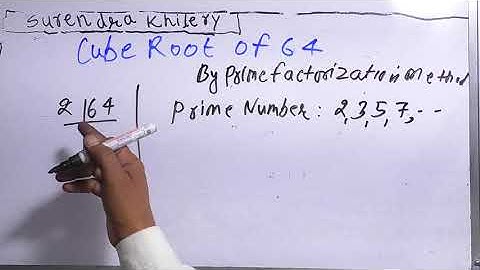 Surendra Khilery
Cube Root of 64
By Prime factorization Method
2 64
Prime Number: 2,3,5,7,--